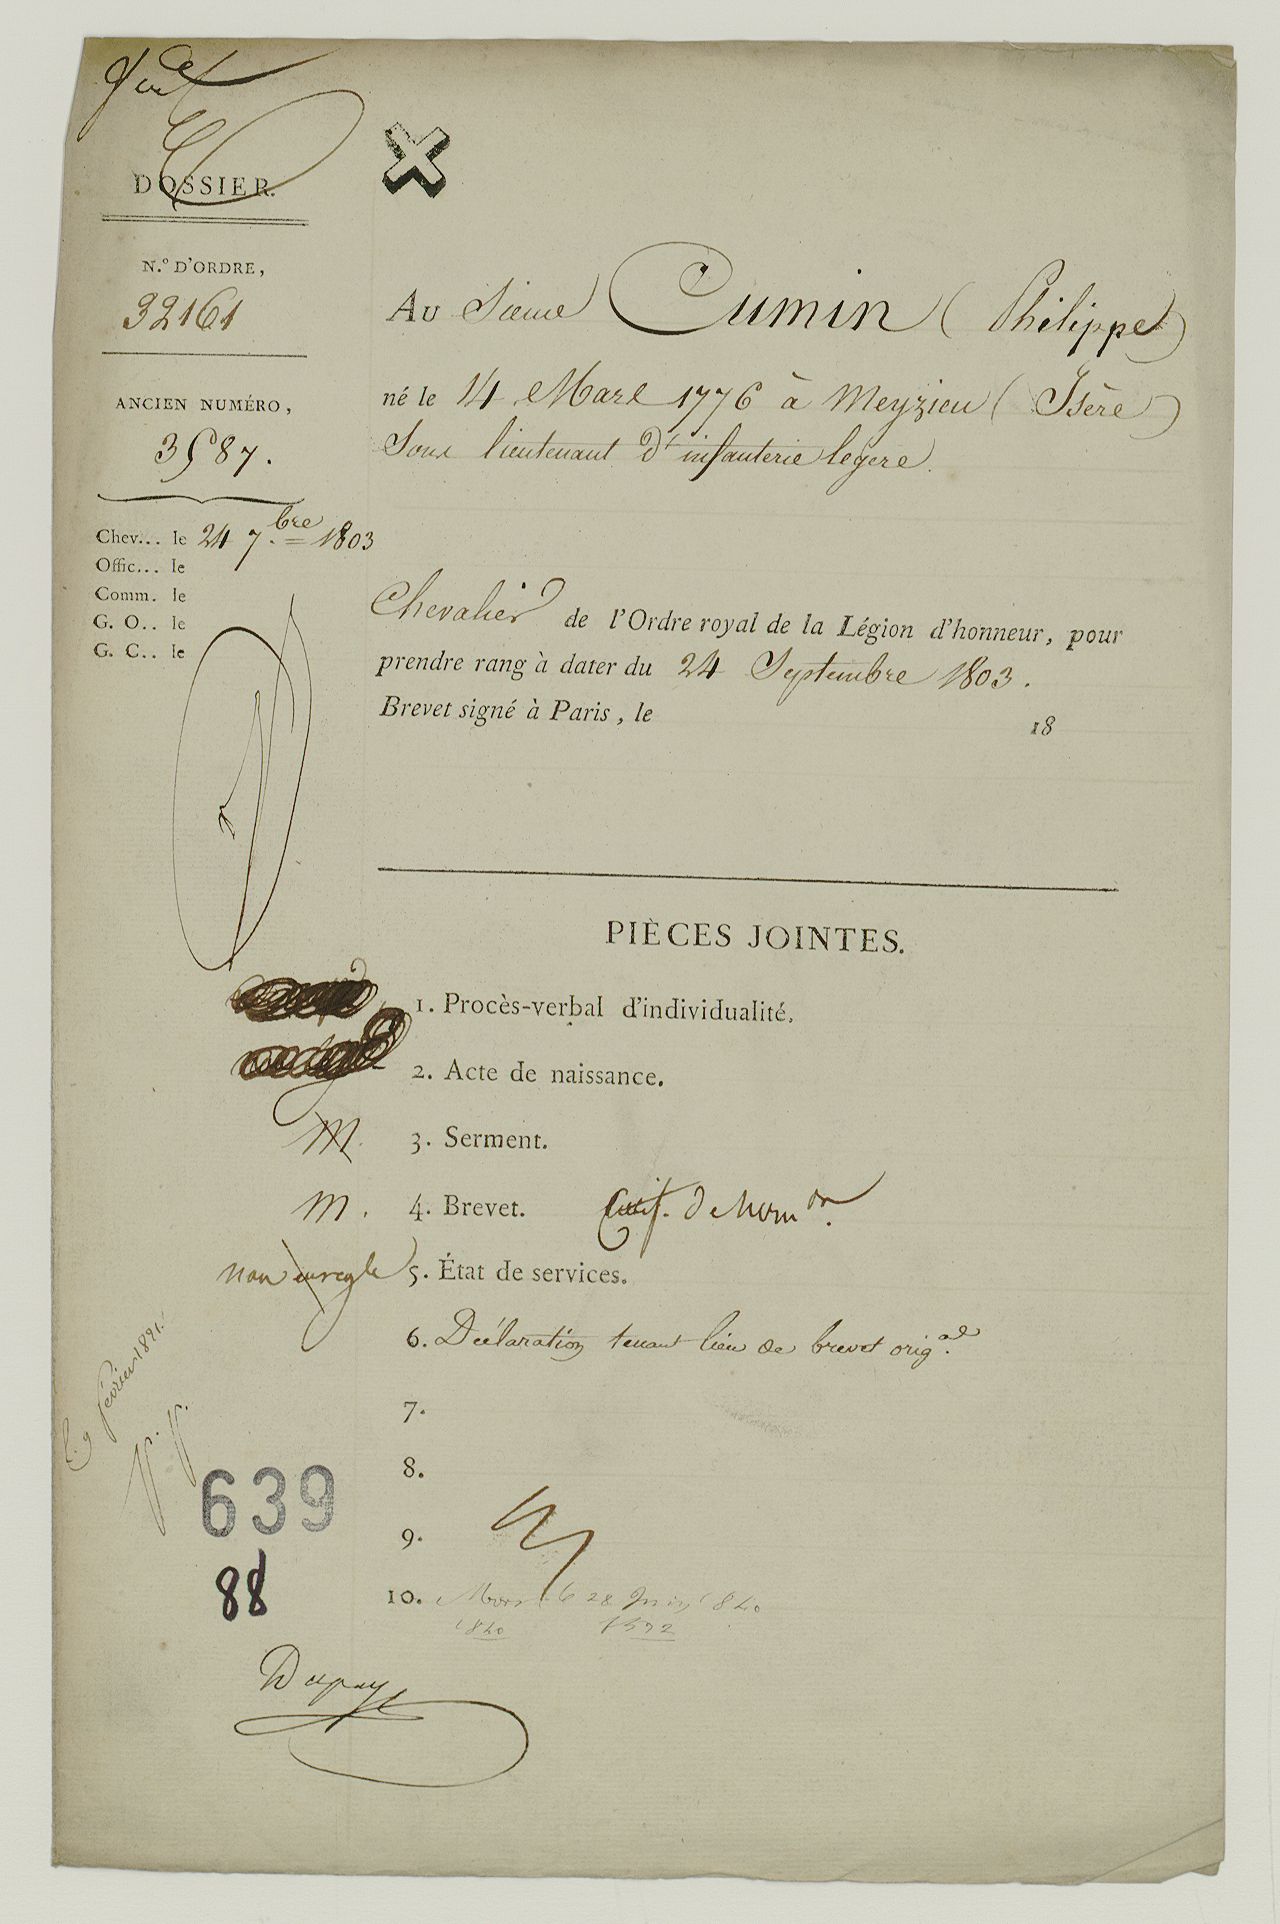 DOSSIER.
N.º D'ORDRE,
32161
ANCIEN NUMÉRO,
3587.
Chev... le 24 7.bre 1803
Offic... le
Comm. le
G. O.. le
G. C.. le
Au Sieur Cumin (Philippe)
né le 14 Mars 1776 à Meyzieu (Isère)
Sous lieutenant d'infanterie legere.
Chevalier de l'Ordre royal de la Légion d'honneur, pour
prendre rang à dater du 24 Septembre 1803.
Brevet signé à Paris, le 18
PIÈCES JOINTES.
1. Procès-verbal d'individualité.
2. Acte de naissance.
M. 3. Serment.
m. 4. Brevet. Certif. de Nom.on
non en regle 5. État de services.
6. Déclaration tenant lieu de brevet orig.al
7.
8.
9.
10. Mort le 28 Juin 1840
1840 1572
L. 9 février 1821.
639
88
Dupuy